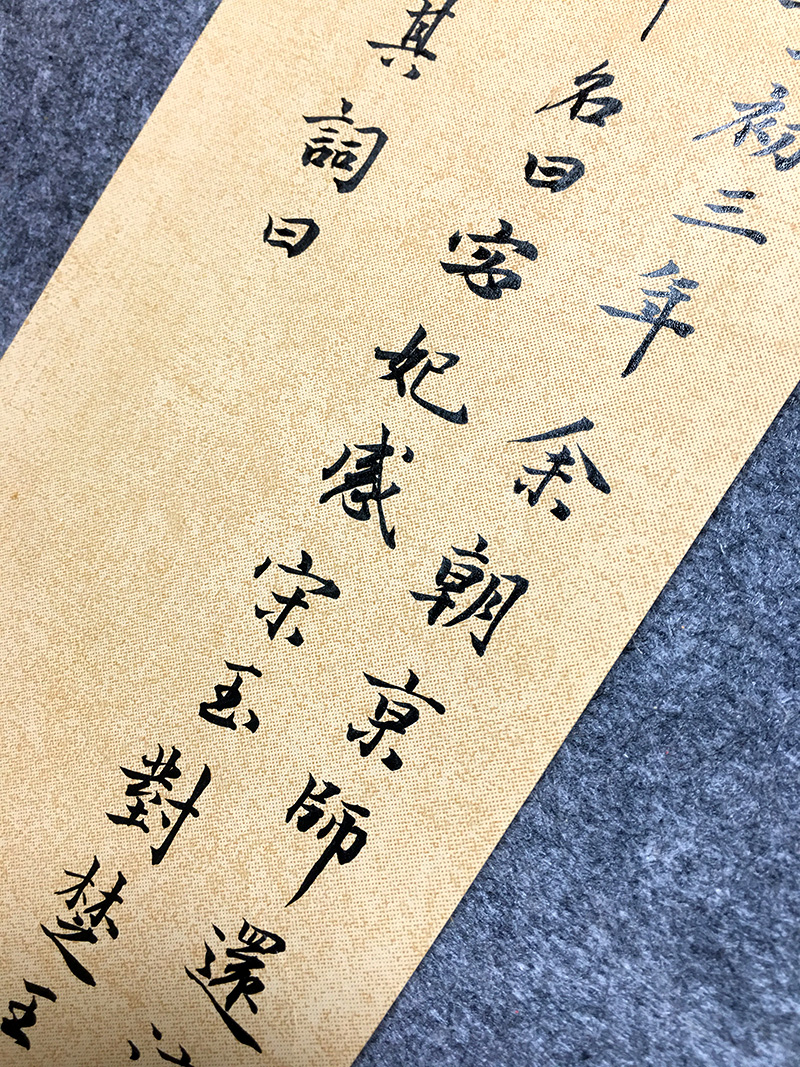 初三年余朝京師還
名曰宓妃感宋玉對楚王
其詞曰